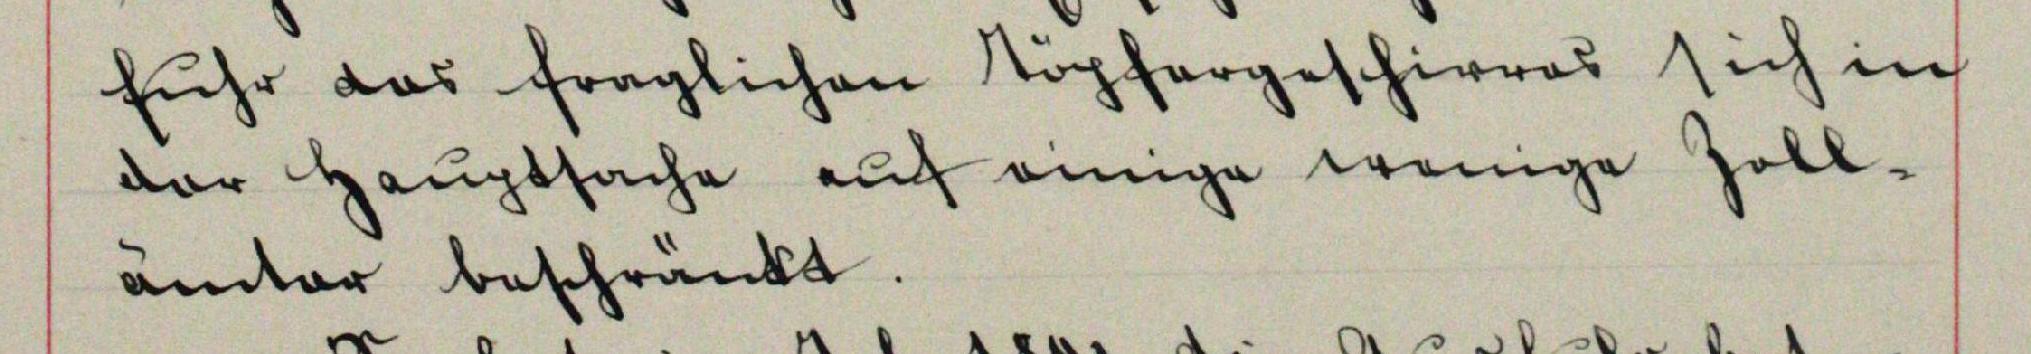 fuhr des fraglichen Töpfergeschirres sich in
der Hauptsache auf einige wenige Zoll-
ämter beschränkt.